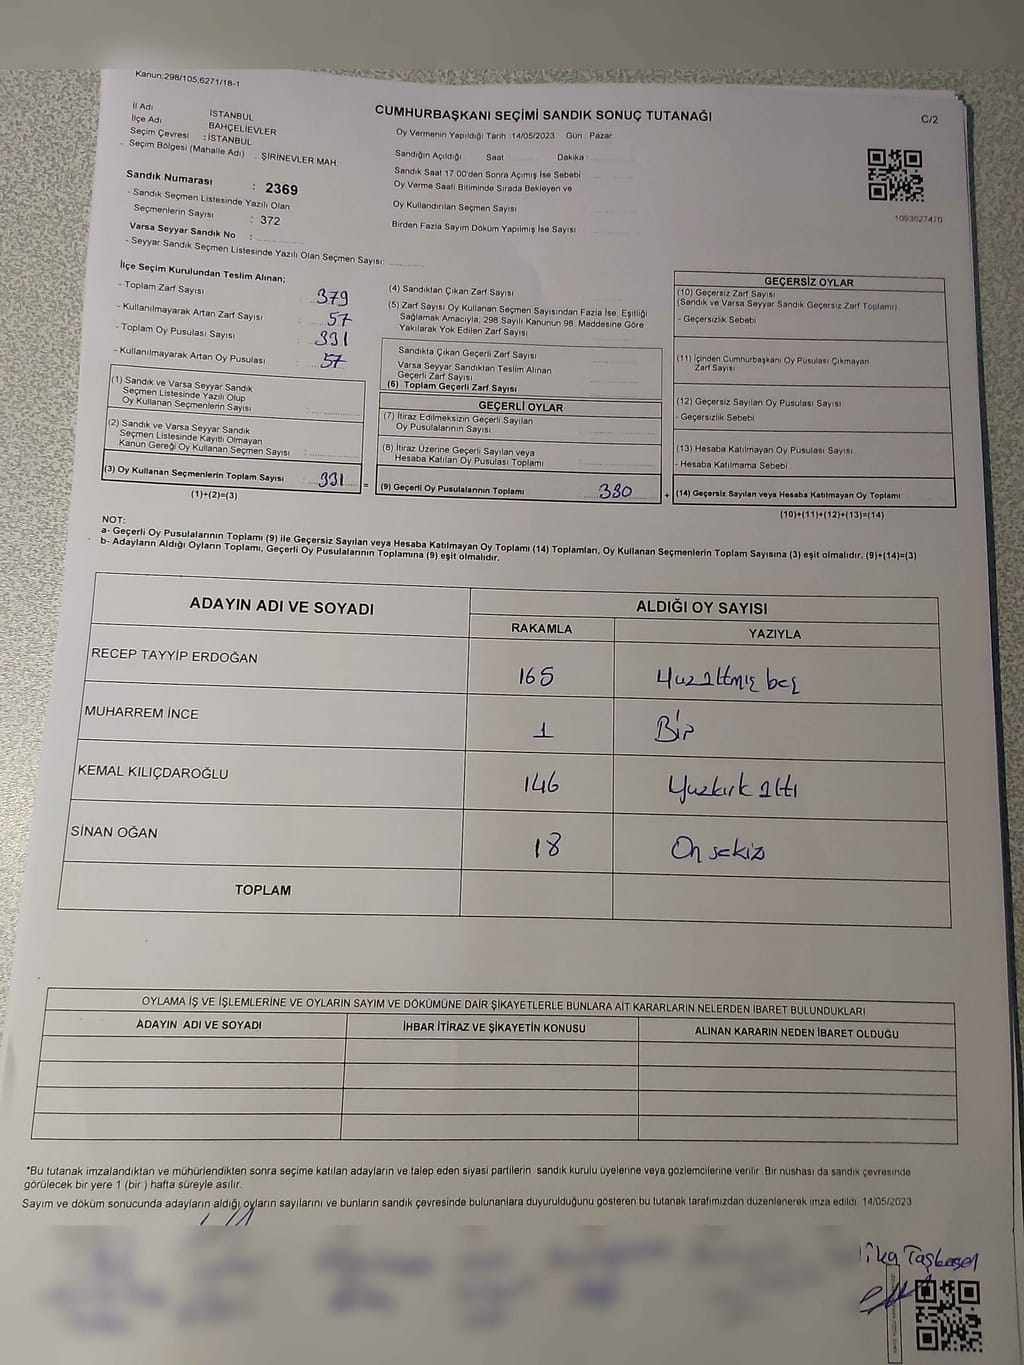 Kanun.298/105,6271/18-1
CUMHURBAŞKANI SEÇİMİ SANDIK SONUÇ TUTANAĞI
C/2
İl Adı İSTANBUL
İlçe Adı BAHÇELİEVLER
Seçim Çevresi : İSTANBUL
Seçim Bölgesi (Mahalle Adı) . ŞİRİNEVLER MAH.
Sandık Numarası : 2369
- Sandık Seçmen Listesinde Yazılı Olan
Seçmenlerin Sayısı : 372
Varsa Seyyar Sandık No :
- Seyyar Sandık Seçmen Listesinde Yazılı Olan Seçmen Sayısı:
Oy Vermenin Yapıldığı Tarih 14/05/2023 Gün : Pazar
Sandığın Açıldığı Saat Dakika
Sandık Saat 17.00'den Sonra Açımış İse Sebebi
Oy Verme Saati Bitiminde Sırada Bekleyen ve
Oy Kullandırılan Seçmen Sayısı
Birden Fazla Sayım Döküm Yapılmış İse Sayısı
1093627470
İlçe Seçim Kurulundan Teslim Alınan;
- Toplam Zarf Sayısı : 379
- Kullanılmayarak Artan Zarf Sayısı : 57
- Toplam Oy Pusulası Sayısı : 331
- Kullanılmayarak Artan Oy Pusulası : 57
(1) Sandık ve Varsa Seyyar Sandık
Seçmen Listesinde Yazılı Olup
Oy Kullanan Seçmenlerin Sayısı :
(2) Sandık ve Varsa Seyyar Sandık
Seçmen Listesinde Kayıtlı Olmayan
Kanun Gereği Oy Kullanan Seçmen Sayısı :
(3) Oy Kullanan Seçmenlerin Toplam Sayısı 331 =
(1)+(2)=(3)
(4) Sandıktan Çıkan Zarf Sayısı
(5) Zarf Sayısı Oy Kullanan Seçmen Sayısından Fazla İse, Eşitliği
Sağlamak Amacıyla, 298 Sayılı Kanunun 98. Maddesine Göre
Yakılarak Yok Edilen Zarf Sayısı
Sandıkta Çıkan Geçerli Zarf Sayısı
Varsa Seyyar Sandıktan Teslim Alınan
Geçerli Zarf Sayısı
(6) Toplam Geçerli Zarf Sayısı
GEÇERLİ OYLAR
(7) İtiraz Edilmeksizin Geçerli Sayılan
Oy Pusulalarının Sayısı
(8) İtiraz Üzerine Geçerli Sayılan veya
Hesaba Katılan Oy Pusulası Toplamı
(9) Geçerli Oy Pusulalarının Toplamı 330 +
GEÇERSİZ OYLAR
(10) Geçersiz Zarf Sayısı
(Sandık ve Varsa Seyyar Sandık Geçersiz Zarf Toplamı)
- Geçersizlik Sebebi
(11) İçinden Cumhurbaşkanı Oy Pusulası Çıkmayan
Zarf Sayısı
(12) Geçersiz Sayılan Oy Pusulası Sayısı
- Geçersizlik Sebebi
(13) Hesaba Katılmayan Oy Pusulası Sayısı
- Hesaba Katılmama Sebebi
(14) Geçersiz Sayılan veya Hesaba Katılmayan Oy Toplamı
(10)+(11)+(12)+(13)=(14)
NOT:
a- Geçerli Oy Pusulalarının Toplamı (9) ile Geçersiz Sayılan veya Hesaba Katılmayan Oy Toplamı (14) Toplamları, Oy Kullanan Seçmenlerin Toplam Sayısına (3) eşit olmalıdır. (9)+(14)=(3)
b- Adayların Aldığı Oyların Toplamı, Geçerli Oy Pusulalarının Toplamına (9) eşit olmalıdır.
ADAYIN ADI VE SOYADI ALDIĞI OY SAYISI
RAKAMLA YAZIYLA
RECEP TAYYİP ERDOĞAN 165 Yüz altmış beş
MUHARREM İNCE 1 Bir
KEMAL KILIÇDAROĞLU 146 Yüzkırk altı
SİNAN OĞAN 18 On sekiz
TOPLAM
OYLAMA İŞ VE İŞLEMLERİNE VE OYLARIN SAYIM VE DÖKÜMÜNE DAİR ŞİKAYETLERLE BUNLARA AİT KARARLARIN NELERDEN İBARET BULUNDUKLARI
ADAYIN ADI VE SOYADI İHBAR İTİRAZ VE ŞİKAYETİN KONUSU ALINAN KARARIN NEDEN İBARET OLDUĞU
*Bu tutanak imzalandıktan ve mühürlendikten sonra seçime katılan adayların ve talep eden siyasi partilerin sandık kurulu üyelerine veya gözlemcilerine verilir. Bir nüshası da sandık çevresinde
görülecek bir yere 1 (bir ) hafta süreyle asılır.
Sayım ve döküm sonucunda adayların aldığı oyların sayılarını ve bunların sandık çevresinde bulunanlara duyurulduğunu gösteren bu tutanak tarafımızdan düzenlenerek imza edildi 14/05/2023